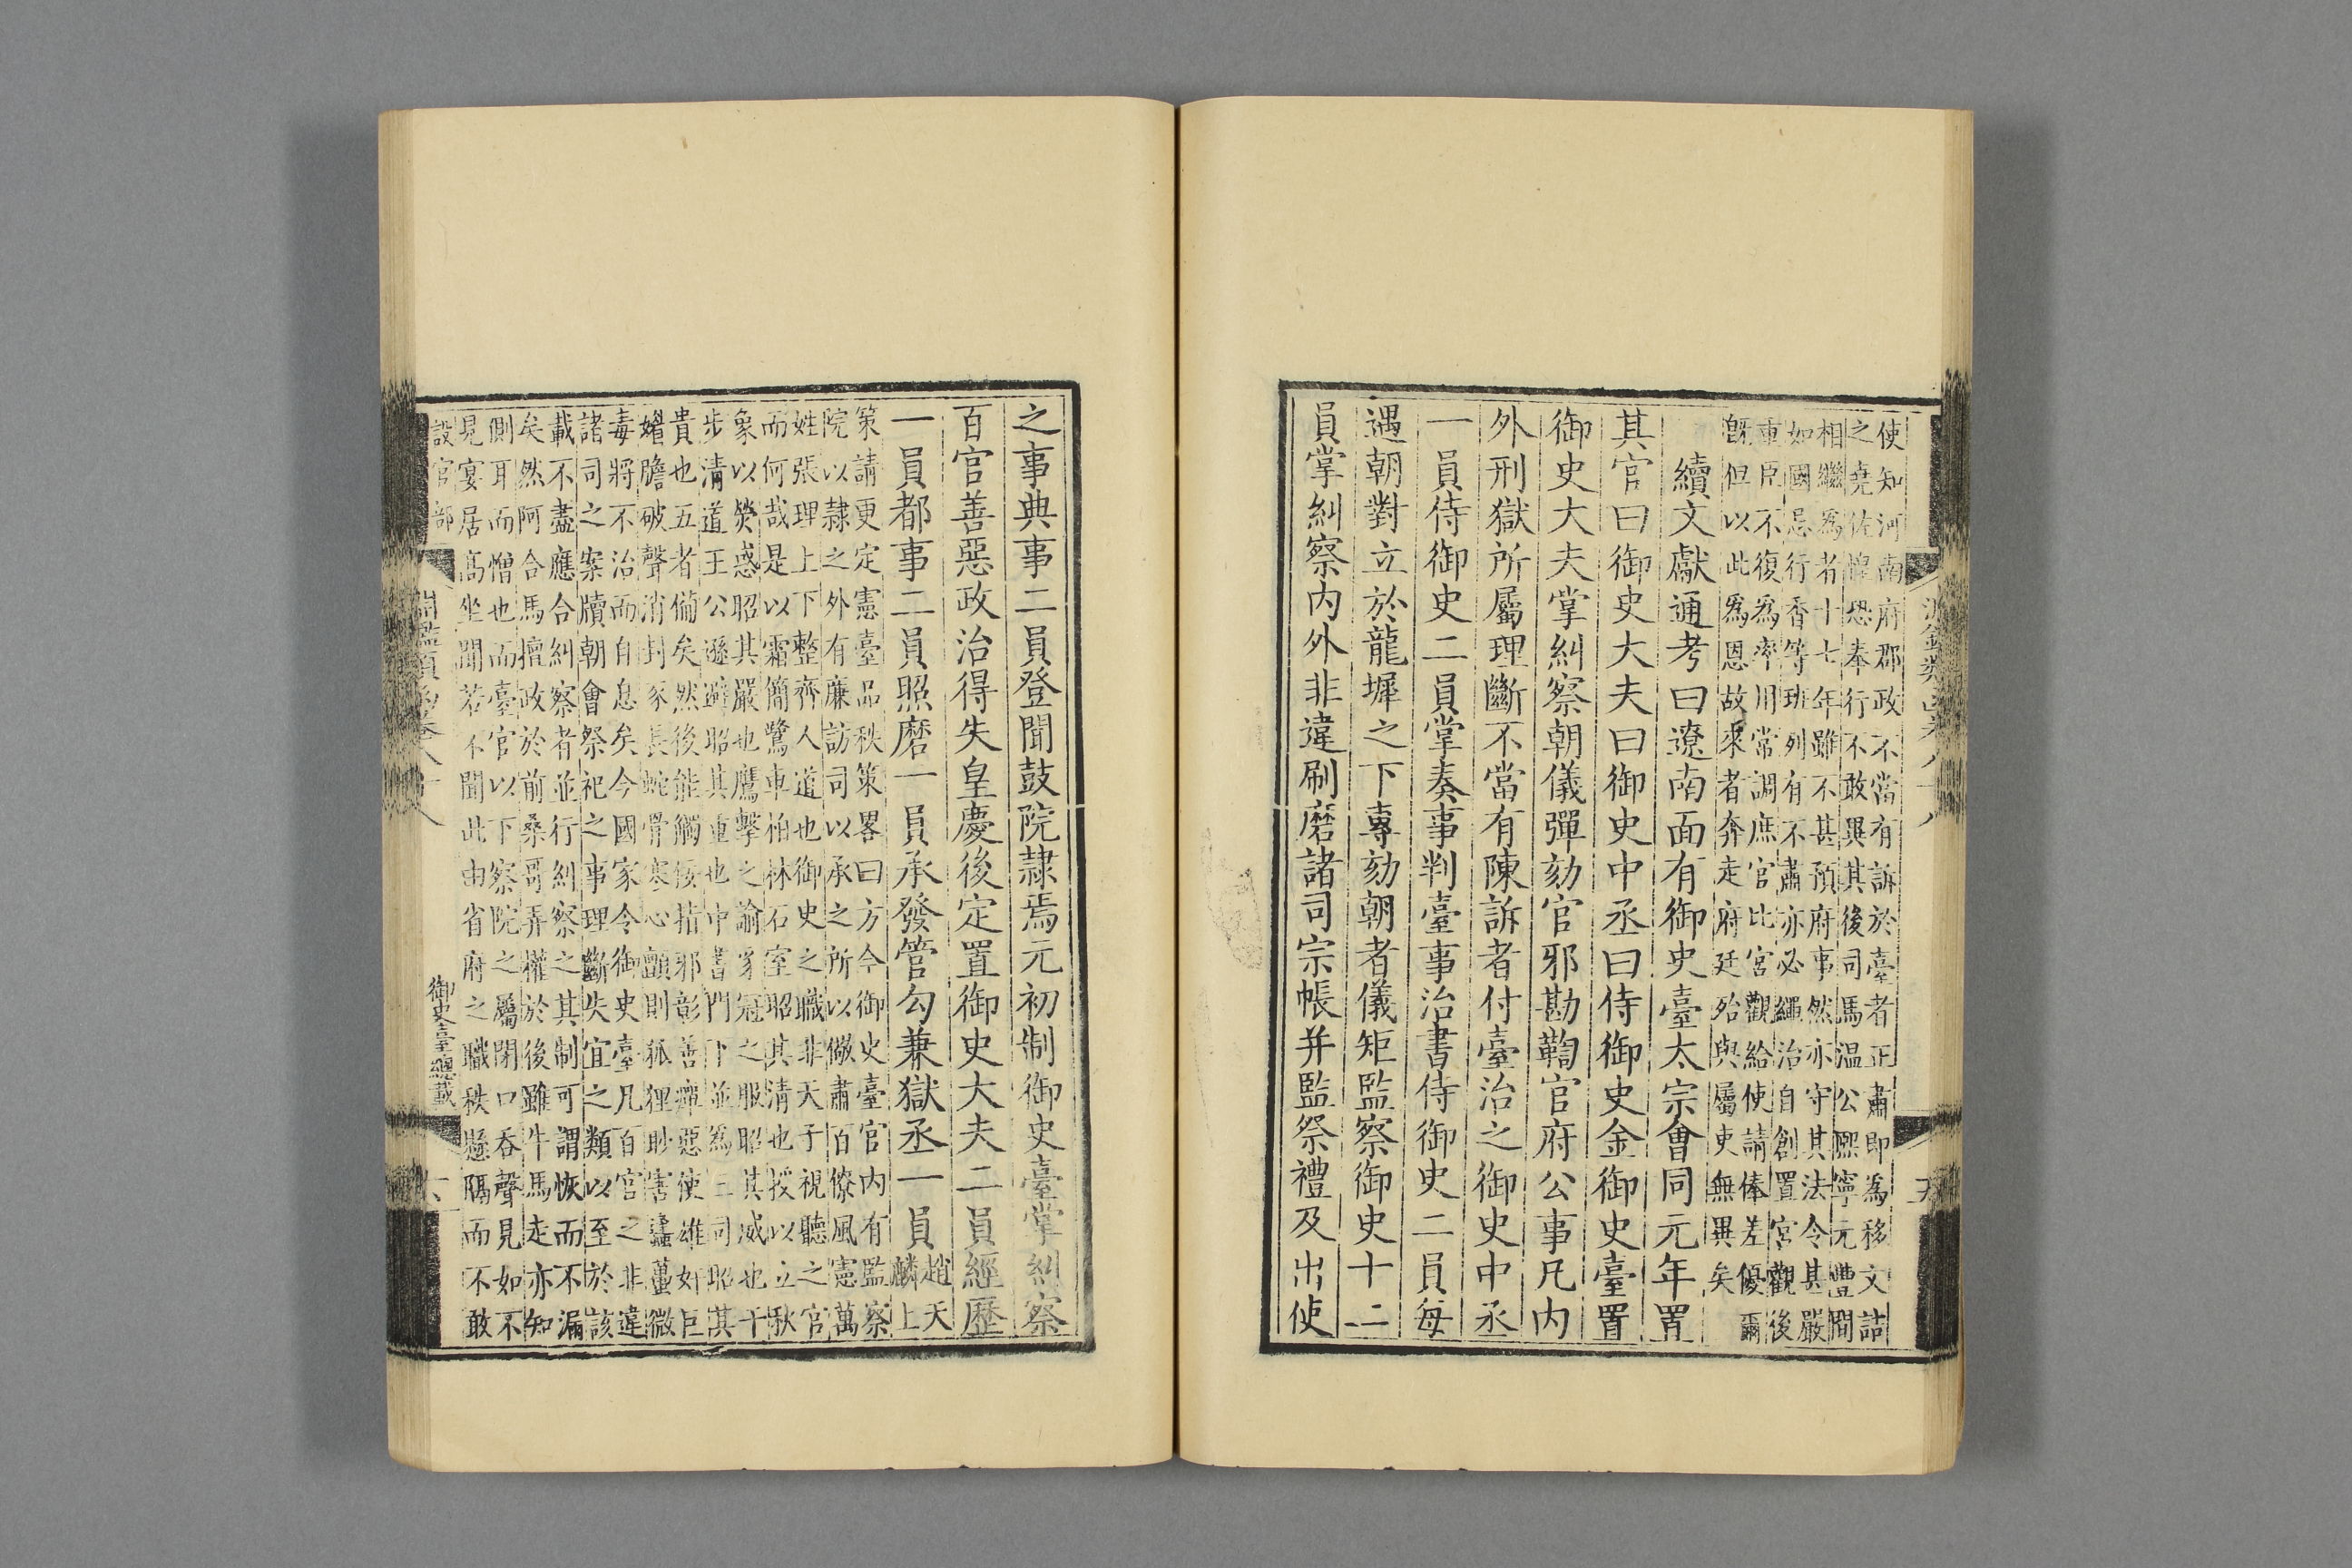 使知河南府郡政不當有訴於臺者正肅即爲移文詰
之堯佐惶恐奉行不敢異其後司馬温公熙寧元豐間
相繼爲者十七年雖不甚預府事然亦守其法令甚嚴
如國忌行香等班列有不肅亦必繩治自創置宮觀後
重臣不復爲率用常調庶官比宮觀給使請俸差優爾
旣但以此爲恩故來者奔走府廷殆與屬吏無異矣
續文獻通考曰遼南面有御史臺太宗會同元年置
其官曰御史大夫曰御史中丞曰侍御史金御史臺置
御史大夫掌糾察朝儀彈劾官邪勘鞫官府公事凡内
外刑獄所屬理斷不當有陳訴者付臺治之御史中丞
一員侍御史二員掌奏事判臺事治書侍御史二員每
遇朝對立於龍墀之下專劾朝者儀矩監察御史十二
員掌糾察内外非違刷磨諸司宗帳并監祭禮及出使
之事典事二員登聞鼓院隷焉元初制御史臺掌糾察
百官善惡政治得失皇慶後定置御史大夫二員經歷
一員都事二員照磨一員承發管勾兼獄丞一員趙天
麟上
策請更定憲臺品秩策畧曰方今御史臺官内有監察
院以隷之外有廉訪司以承之所以儆肅百僚風憲萬
姓張理上下整齊人道也御史之職非天子視聽之官
而何哉是以霜簡驄車柏林石室昭其清也授以立秋
象以熒惑昭其嚴也鷹擊之諭豸冠之服昭其威也干
步清道王公遜避昭其重也中書門下並爲三司昭其
貴也五者備矣然後能觸佞指邪彰善癉惡使雄奸巨
婿膽破聲消封豕長蛇骨寒心顫則狐狸眇害蠭蠆微
毒將不治而自息矣今國家令御史臺凡百官之非違
諸司之案牘朝會祭祀之事理斷失宜之類以至於該
載不盡應合糾察者並行糾察之其制可謂恢而不漏
矣然阿合馬擅政於前桑哥弄權於後雖牛馬走亦知
側耳而憎也而臺官以下察院之屬閉口吞聲見如不
見宴居高坐聞若不聞此由省府之職秩懸隔而不敢
設官部
御史臺總載
六